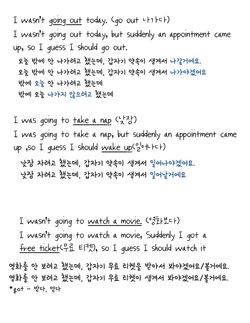 I wasn't going out today. (go out 나가다)
I wasn't going out today, but suddenly an appointment came
up, so I guess I should go out.
오늘 밖에 안 나가려고 했는데, 갑자기 약속이 생겨서 나갈거에요.
오늘 밖에 안 나가려고 했는데, 갑자기 약속이 생겨서 나가야겠어요
밖에 오늘 안 나가려고 했는데
밖에 오늘 나가지 않으려고 했는데
I was going to take a nap (낮잠)
I was going to take a nap, but suddenly an appointment came
up ,so I guess I should wake up(일어나다)
낮잠 자려고 했는데, 갑자기 약속이 생겨서 일어나야겠어요.
낮잠 자려고 했는데, 갑자기 약속이 생겨서 일어날거에요
I wasn't going to watch a movie. (영화보다)
I wasn't going to watch a movie, Suddenly I got a
free ticket(무료 티켓), so I guess I should watch it
영화를 안 보려고 했는데, 갑자기 무료 티켓을 받아서 봐야겠어요/볼거에요.
영화를 안 보려고 했는데, 갑자기 무료 티켓이 생겨서 봐야겠어요/볼거에요.
*got - 받다, 얻다